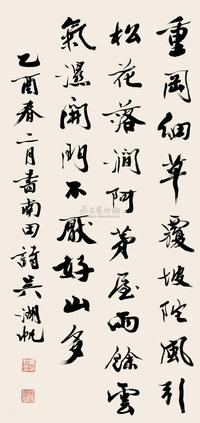 重岡細草覆坡陀風引
松花落澗阿茅屋雨餘雲
氣濕開門不厭好山多
乙酉春二月書南田詩吳湖帆